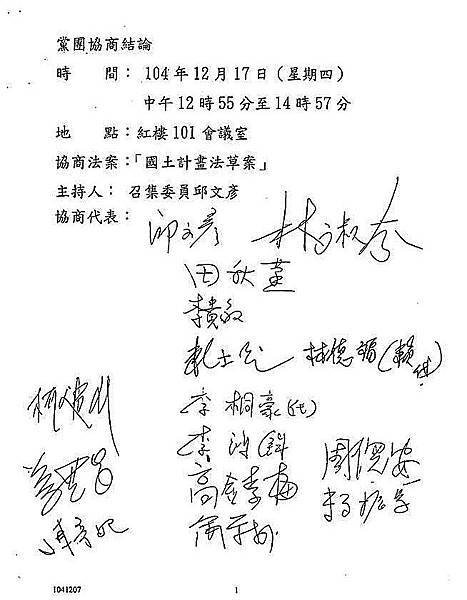 黨團協商結論
時　　間：104年12月17日（星期四）
中午12時55分至14時57分
地　　點：紅樓101會議室
協商法案：「國土計畫法草案」
主持人：召集委員邱文彥
協商代表：
邱文彥 林淑芬
田秋堇
李貴敏
賴士葆 林德福(賴代)
李桐豪(代)
李鴻鈞
周倪安
高金素梅
柯建銘
1041207
1